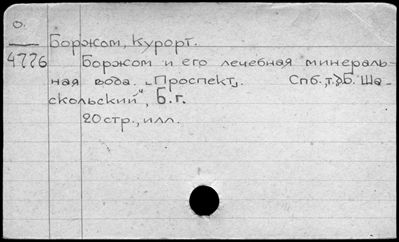 О.
4776
Боржом, Курорт.
Боржом и его лечебная минераль-
ная вода. „Проспект„. Спб., т.д. Б. Ша-
скольский", Б.г.
20 стр., илл.